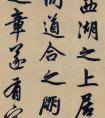 西湖之上居
間道合之朋
之章遂有宿